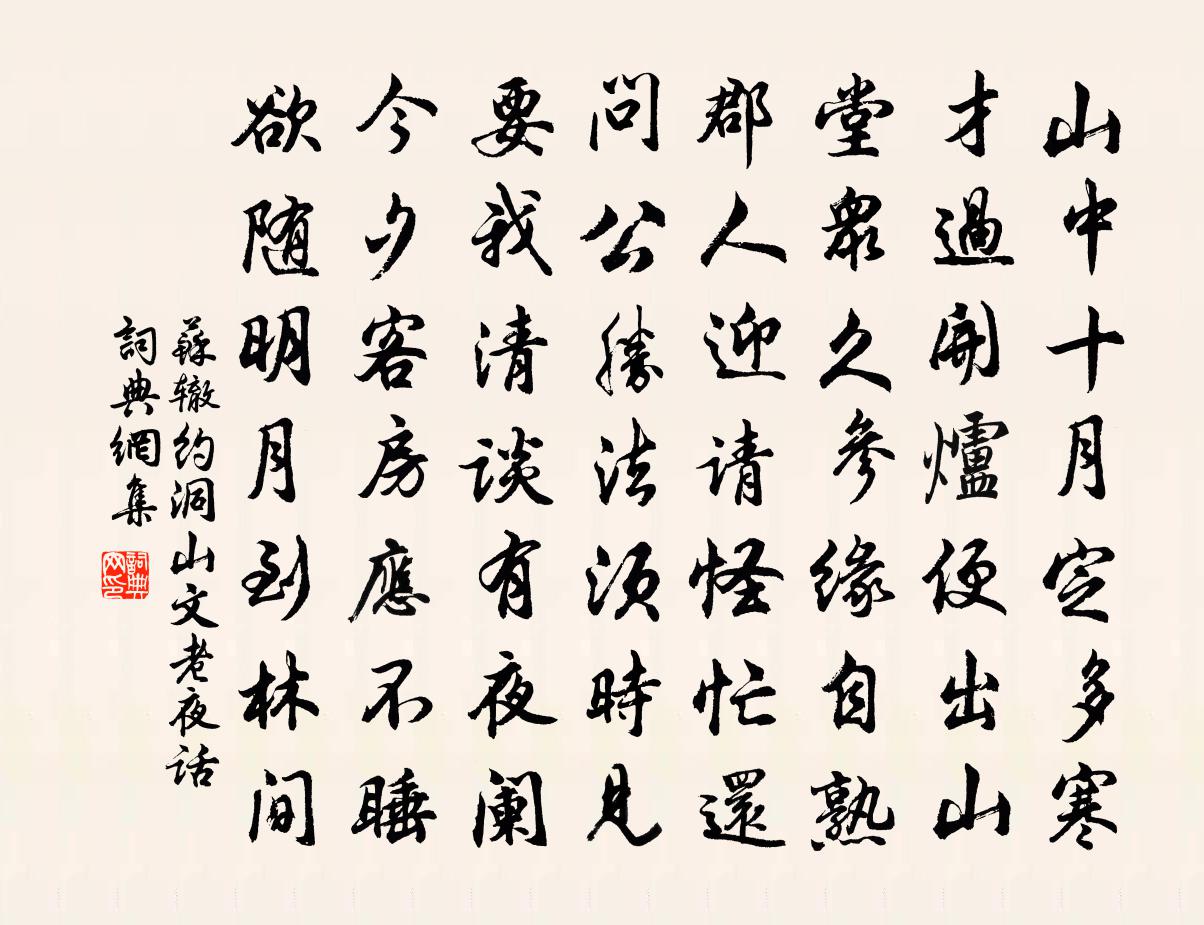 山中十月定多寒
才過開爐便出山
堂衆久參緣自熟
郡人迎请怪忙還
問公勝法須時見
要我清谈有夜阑
今夕客房應不睡
欲随明月到林間
蘇辙约洞山文老夜话
詞典網集
詞典网印